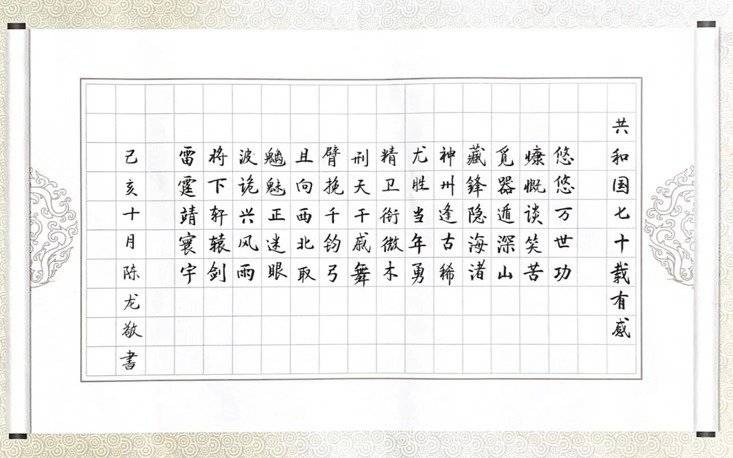 共和国七十载有感
悠悠万世功
慷慨谈笑苦
觅器遁深山
藏锋隐海渚
神州逢古稀
尤胜当年勇
精卫衔微木
刑天干戚舞
臂挽千钧弓
且向西北取
魑魅正迷眼
波诡兴风雨
将下轩辕剑
雷霆靖寰宇
己亥十月陈龙敬书